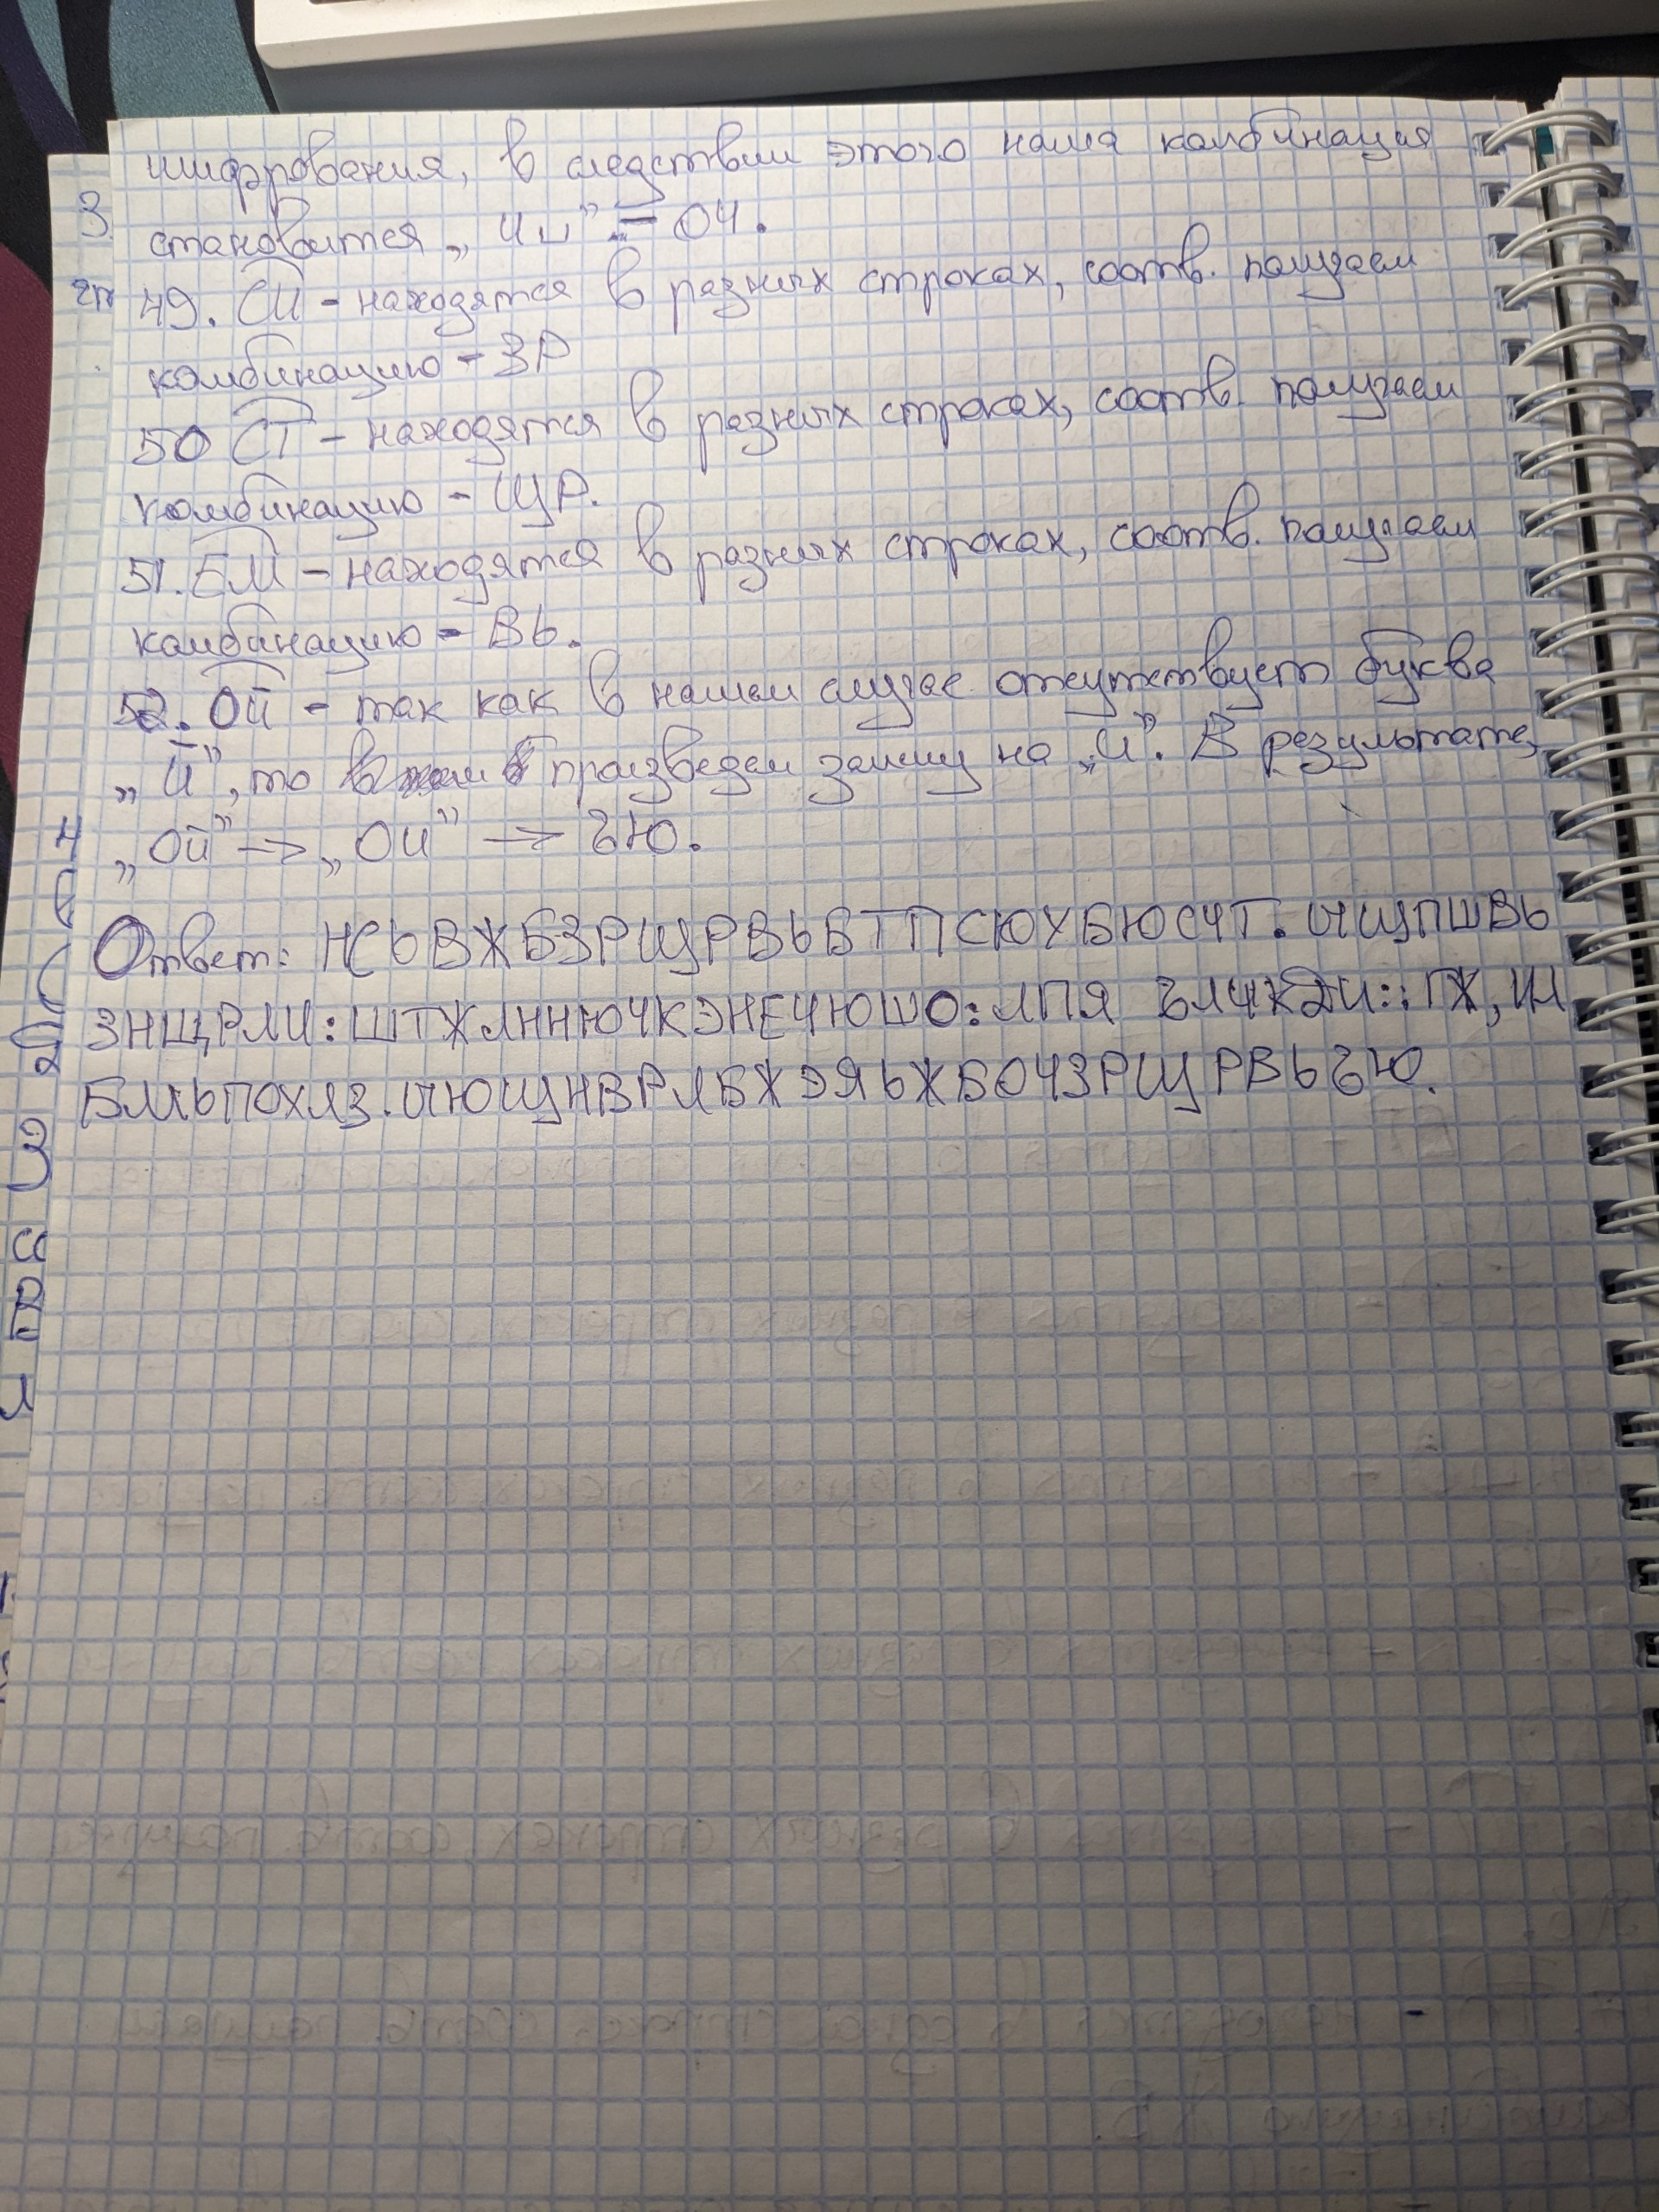 шифрования, в следствии этого наша комбинация
становится „ Чи" = ОЧ.
49. СИ - находятся в разных строках, соотв. получаем
комбинацию - ЗР
50 СТ - находятся в разных строках, соотв. получаем
комбинацию - ЩР.
51. ЕМ - находятся в разных строках, соотв. получаем
комбинацию - ВЬ.
52. ОЙ - так как в нашем случае отсутствует буква
„Й", то произведем замену на „И". В результате,
„ОЙ" -> „ОИ" -> ЪЮ.
Ответ: НСЬВЖБЗРЩРВЬВТПСЮУБЮСЧТ.ИЧЩПШВЬ
ЗНЩРЛИ:ШТЖЛННЮЧКЭНЕЧЮШО:ЛПЯ ЪЛЧКДИ::ГЖ,ИЛ
БМЬПОХЛЗ.ИЧЮЩНВРЛБЖЭЯЬЖБОЧЗРЩРВЬЪЮ.